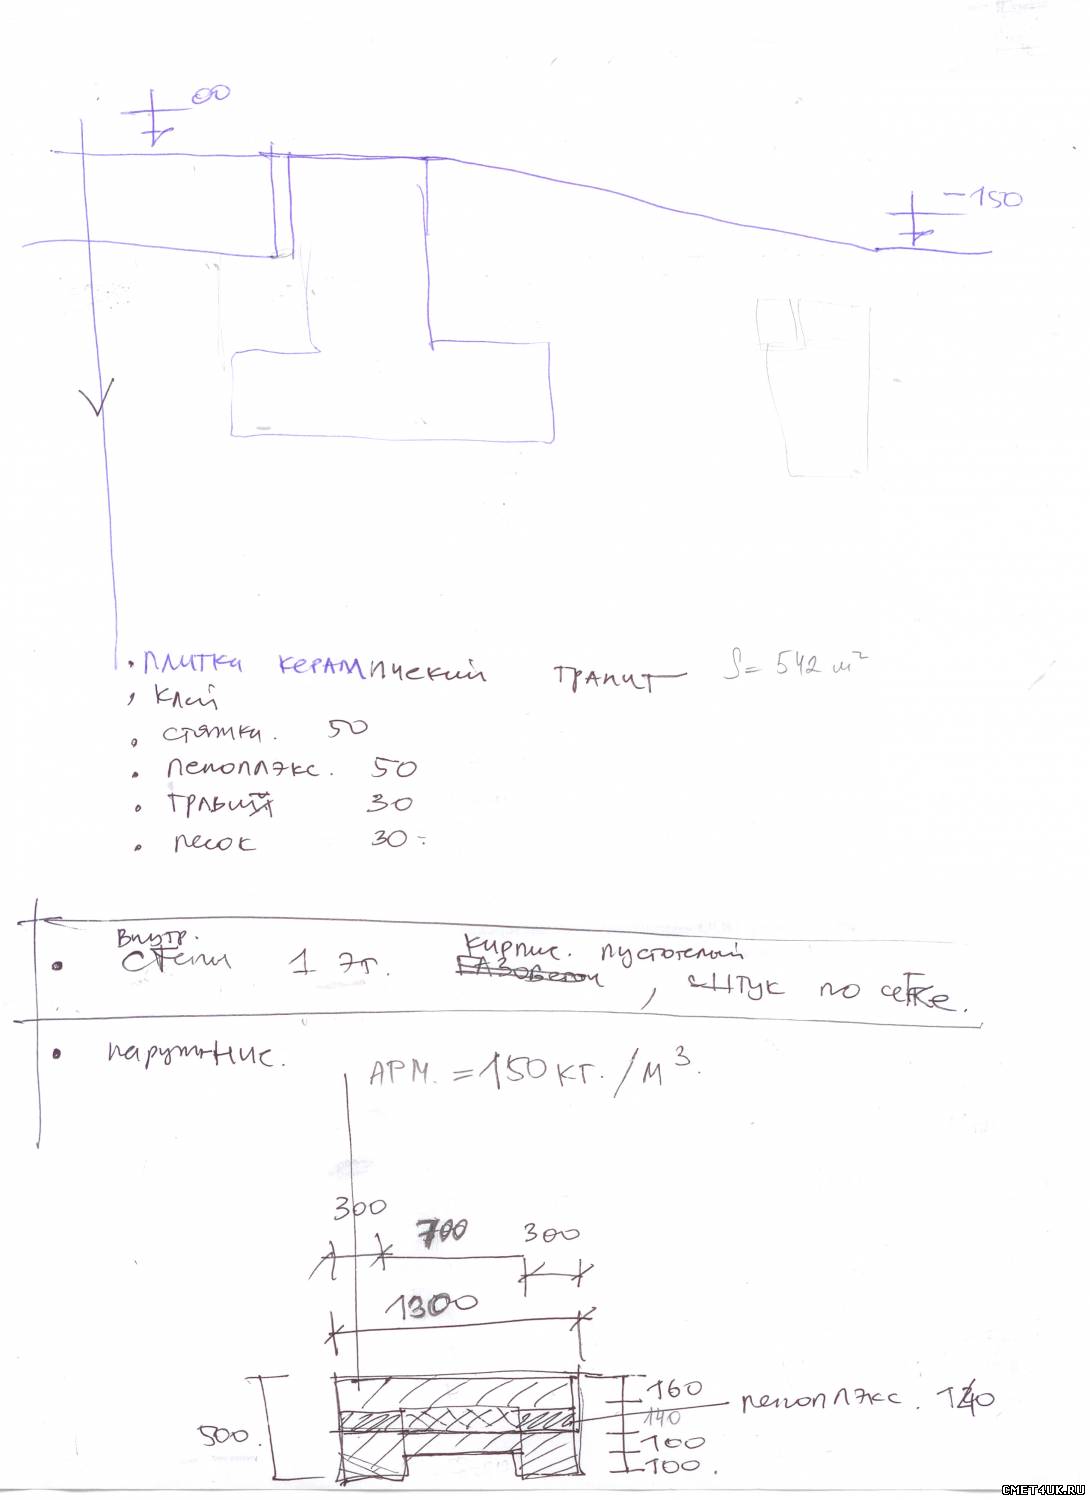 00
-150
• плитки керамический гранит S= 542 м²
• клей
• стяжка. 50
• пеноплэкс. 50
• гравий 30
• песок 30
внутр. кирпис. пустотелый
• стены 1 эт. газобетон, штук по сетке.
• наружние.
АРМ. = 150 кг. / м³.
300
700 300
1300
160
пеноплэкс. 140
140
500.
100
100.
CMET4UK.RU